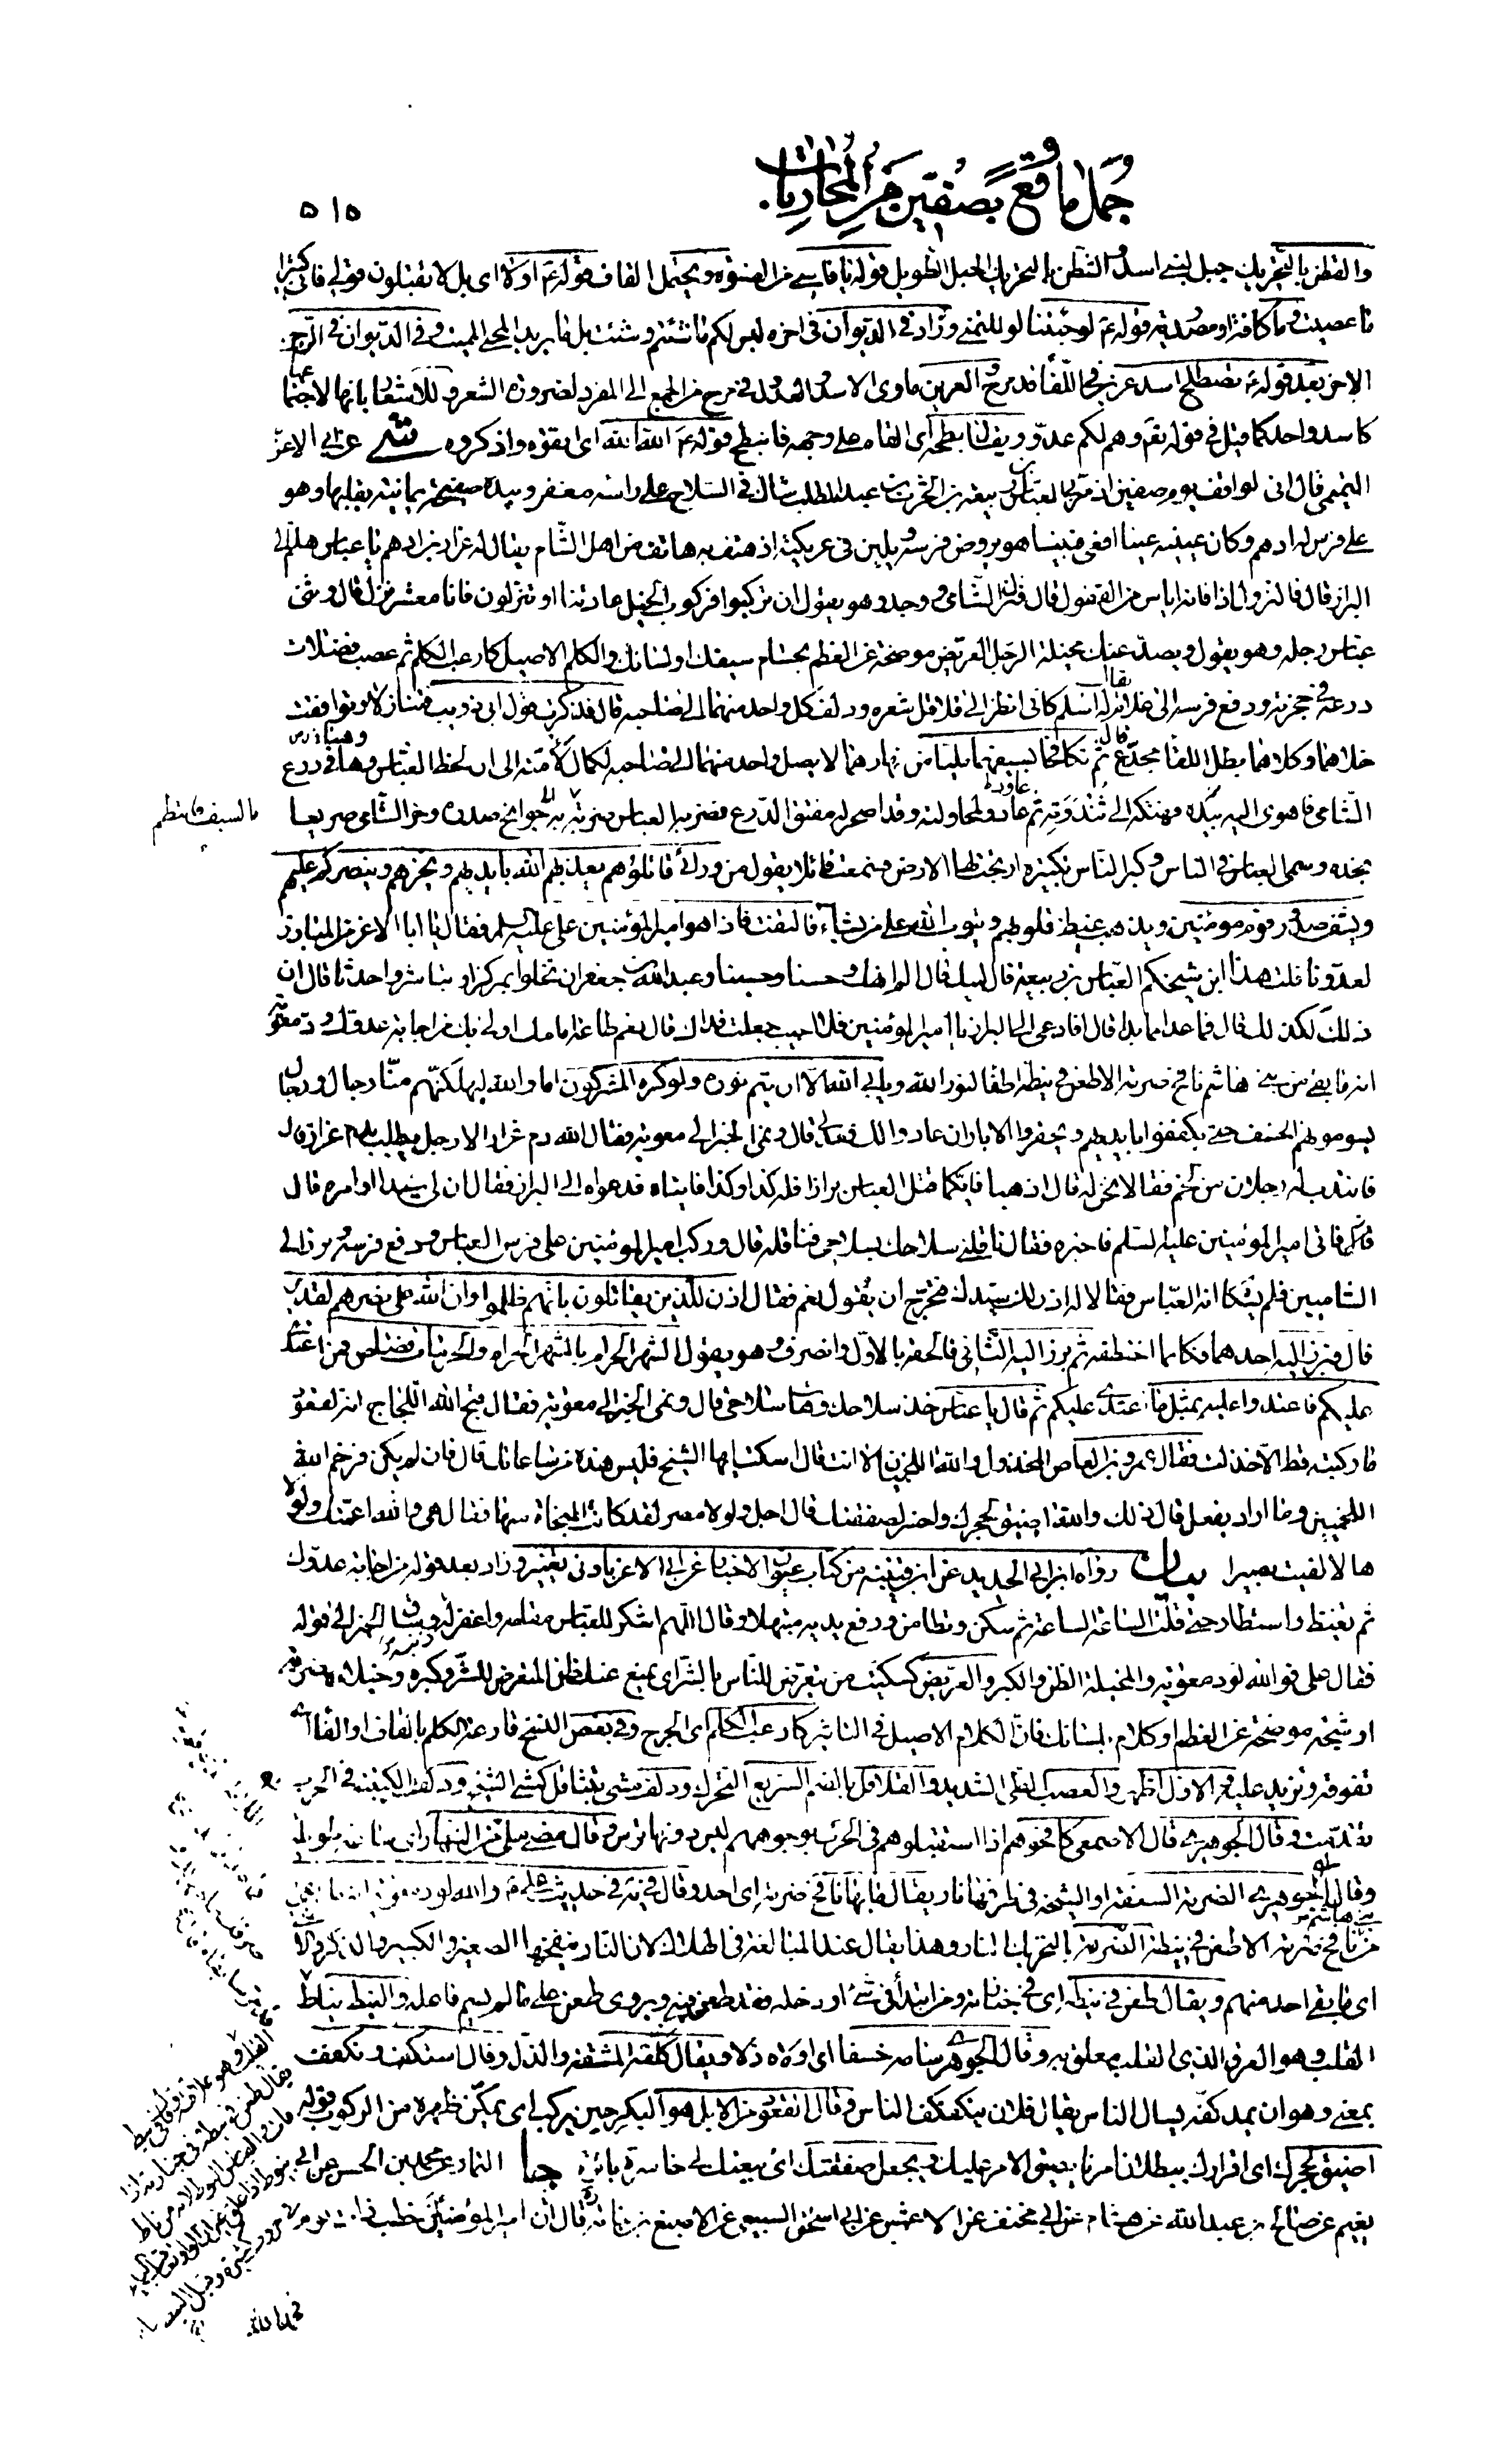 جمل ما وقع بصفين من المحاربات
٥١٥
والقطن بالتحريك جبل لبني اسد والشطن بالتحريك الحبل الطويل قوله يا قاسي من القسوة ويحتمل القاف قوله ع اولا اى بل لا تقبلون قولي فاني كثيرا
ما عصيت وما كافة او مصدرية قوله ع لو جئتنا لو للتمني وزاد في الديوان في اخره ليس لكم ما شئتم وشئت بل ما يريد المحي المميت وفي الديوان في الرجز
الاخر بعد قوله ع تصطلح اسد عرين في اللقا قد مرح العرين ماوى الاسد والعدول في مرح من الجمع الى المفرد لضرورة الشعر وللاشعار بانها لاجتماعها
كاسد واحد كما قيل في قوله تعالى وهم لكم عدو ويقال بطحه اى القاه على وجهه فانبطح قوله ع الله الله اى اتقوه واذكروه شي عن ابي الاغر
التميمي قال اني لواقف يوم صفين اذ مر بي العباس بن ربيعة بن الحرث بن عبد المطلب شاك في السلاح على راسه مغفر وبيده صفيحة يمانية يقلبها وهو
على فرس له ادهم وكان عينيه عينا افعى فبينا هو يروض فرسه ويلين في عريكته اذ هتف به هاتف من اهل الشام يقال له عرار بن ادهم يا عباس هلم الى
البراز قال فالنزول اذا فانه اياس من القفول قال فنزل الشامي ووجد وهو يقول ان تركبوا فركوب الخيل عادتنا او تنزلون فانا معشر نزل قال وثنى
عباس رجله وهو يقول ويصد عنك مخيلة الرجل العريض موضحة عن العظم بحسام سيفك او لسانك والكلم الاصيل كارعب الكلم ثم عصب فضلات
درعه في حجزته ودفع فرسه الى غلام له يقال له اسلم كاني انظر الى قلاقل شعره ودلف كل واحد منهما الى صاحبه قال فذكرت قول ابي ذويب فتنازلا وتواقفت
خيلاهما وكلاهما بطل اللقا مجدع قال ثم تكافحا بسيفهما مليا من نهارهما لا يصل واحد منهما الى صاحبه لكمال لامته الى ان لحظ العباس وهنا في درع
الشامي فاهوى اليه بيده فهتكه الى ثندوته ثم عاود لمحاولته وقد اصحر له مفتق الدرع فضربه العباس ضربة بالسيف فانتظم به جوانح صدره وخر الشامي صريعا
بخده وسما العباس في الناس وكبر الناس تكبيرة ارتجت لها الارض فسمعت قائلا يقول من ورائي قاتلوهم يعذبهم الله بايديكم ويخزهم وينصركم عليهم
ويشف صدور قوم مومنين ويذهب غيظ قلوبهم ويتوب الله على من يشاء فالتفت فاذا هو امير المؤمنين على عليه السلم فقال يا ابا الاغر من المبارز
لعدونا قلت هذا ابن شيخكم العباس بن ربيعة قال يا عباس قال لبيك قال الم انهك وحسنا وحسينا وعبد الله بن جعفر ان تخلوا بمركز او تباشروا حدثا قال ان
ذلك لكذلك قال فما عدا مما بدا قال افادعى الى البراز يا امير المؤمنين فلا اجيب جعلت فداك قال نعم طاعة امامك اولى بك من اجابة عدوك ود معوية
انه ما بقي من بني هاشم نافخ ضرمة الا طعن في نيطه اطفا لنور الله ويابى الله الا ان يتم نوره ولو كره المشركون اما والله ليهلكنهم منا رجال ورجال
يسومونهم الخسف حتى يتكففوا بايديهم ويحفروا الابار ان عادوا لك فعد الي قال ونمى الخبر الى معوية فقال الله دم عرار الا رجل يطلب بدم عرار قال
فانتدب له رجلان من لخم فقالا نحن له قال اذهبا فايكما قتل العباس برازا فله كذا وكذا فاتياه فدعواه الى البراز فقال ان لي سيدا اوامره قال
فاتى امير المؤمنين عليه السلم فاخبره فقال ناقلني سلاحك بسلاحي فناقله قال وركب امير المؤمنين على فرس العباس ودفع فرسه وبرز الى
الشاميين فلم يشكا انه العباس فقالا له اذن لك سيدك فتحرج ان يقول نعم فقال اذن للذين يقاتلون بانهم ظلموا وان الله على نصرهم لقدير
قال فبرز اليه احدهما فكانما اختطفه ثم برز اليه الثاني فالحقه بالاول وانصرف وهو يقول الشهر الحرام بالشهر الحرام والحرمات قصاص فمن اعتدى
عليكم فاعتدوا عليه بمثل ما اعتدى عليكم ثم قال يا عباس خذ سلاحك وهات سلاحي قال ونمى الخبر الى معوية فقال قبح الله اللجاج انه لقعود
ما ركبته قط الا خذلت فقال عمرو بن العاص المخذول والله اللخميان لا انت قال اسكت ايها الشيخ فليس هذه من ساعاتك قال فان لم يكن فرحم الله
اللخميين وما اراه يفعل قال ذلك والله اضيق لحجرك واخسر لصفقتك قال اجل ولولا مصر لقد كانت المنجاة منها فقال هي والله اعمتك ولولا
ها لالفيت بصيرا بيان رواه ابن ابي الحديد عن ابن قتيبة من كتاب عيون الاخبار عن ابي الاغر بادنى تغيير وزاد بعد قوله من اجابة عدوك
ثم تغيظ واستطار حتى قلت الساعة الساعة ثم سكن وتطامن ورفع يديه مبتهلا وقال اللهم اشكر للعباس مقامه واغفر ذنبه وساق الخبر الى قوله
فقال على ع والله لود معوية والمخيلة الظن والكبر والعريض كسكيت من يتعرض للناس بالشر اى يمنع عنك ظن المتعرض للشر وكبره وخيلاءه ضربة
او شجة موضحة عن العظم او كلام بلسانك فان الكلام الاصيل في التاثير كارعب الكلم اى الجرح وفي بعض النسخ قارعة الكلم بالقاف او الفا اى
تفوقه وتزيد عليه والاول اظهر والعصب الطي الشديد والقلاقل بالضم السريع التحرك ودلف مشى بتثاقل كمشي الشيخ ودلفت الكتيبة في الحرب
تقدمت وقال الجوهرى قال الاصمعي كافحوهم اذا استقبلوهم في الحرب بوجوههم ليس دونها ترس وقال مضى ملي من النهار اى ساعة طويلة
وقال الجوهرى الضرمة السعفة او الشيحة في طرفها نار يقال ما بها نافخ ضرمة اى احد وقال في ية في حديث علي ع والله لود معوية انه ما بقي من بني هاشم
نافخ ضرمة الا طعن في نيطه الضرمة بالتحريك النار وهذا يقال عند المبالغة في الهلاك لان النار ينفخها الصغير والكبير والذكر والانثى
اى ما بقي احد منهم ويقال طعن في نيطه اى في جنازته ومن ابتدأ في شئ او دخله فقد طعن فيه ويروى طعن على ما لم يسم فاعله والنيط نياط
القلب وهو العرق الذى القلب معلق به وقال الجوهرى سامه خسفا اى اولاه ذلا ويقال كلفه المشقة والذل وقال استكف وتكفف
بمعنى وهو ان يمد كفه يسال الناس يقال فلان يتكفف الناس وقال القعود من الابل هو البكر حين يركب اى يمكن ظهره من الركوب قوله
اضيق لحجرك اى اقرارك ببطلاننا مما يضيق الامر عليك ويجعل صفقتك اى بيعتك لي خاسرة بائرة جا التمار عن محمد بن الحسن عن ابي
نعيم عن صالح بن عبد الله عن هشام عن ابي مخنف عن الاعمش عن ابي اسحق السبيعي عن الاصبغ بن نباتة قال ان امير المؤمنين خطب ذات يوم
بالسيف فانتظم
فحمد الله